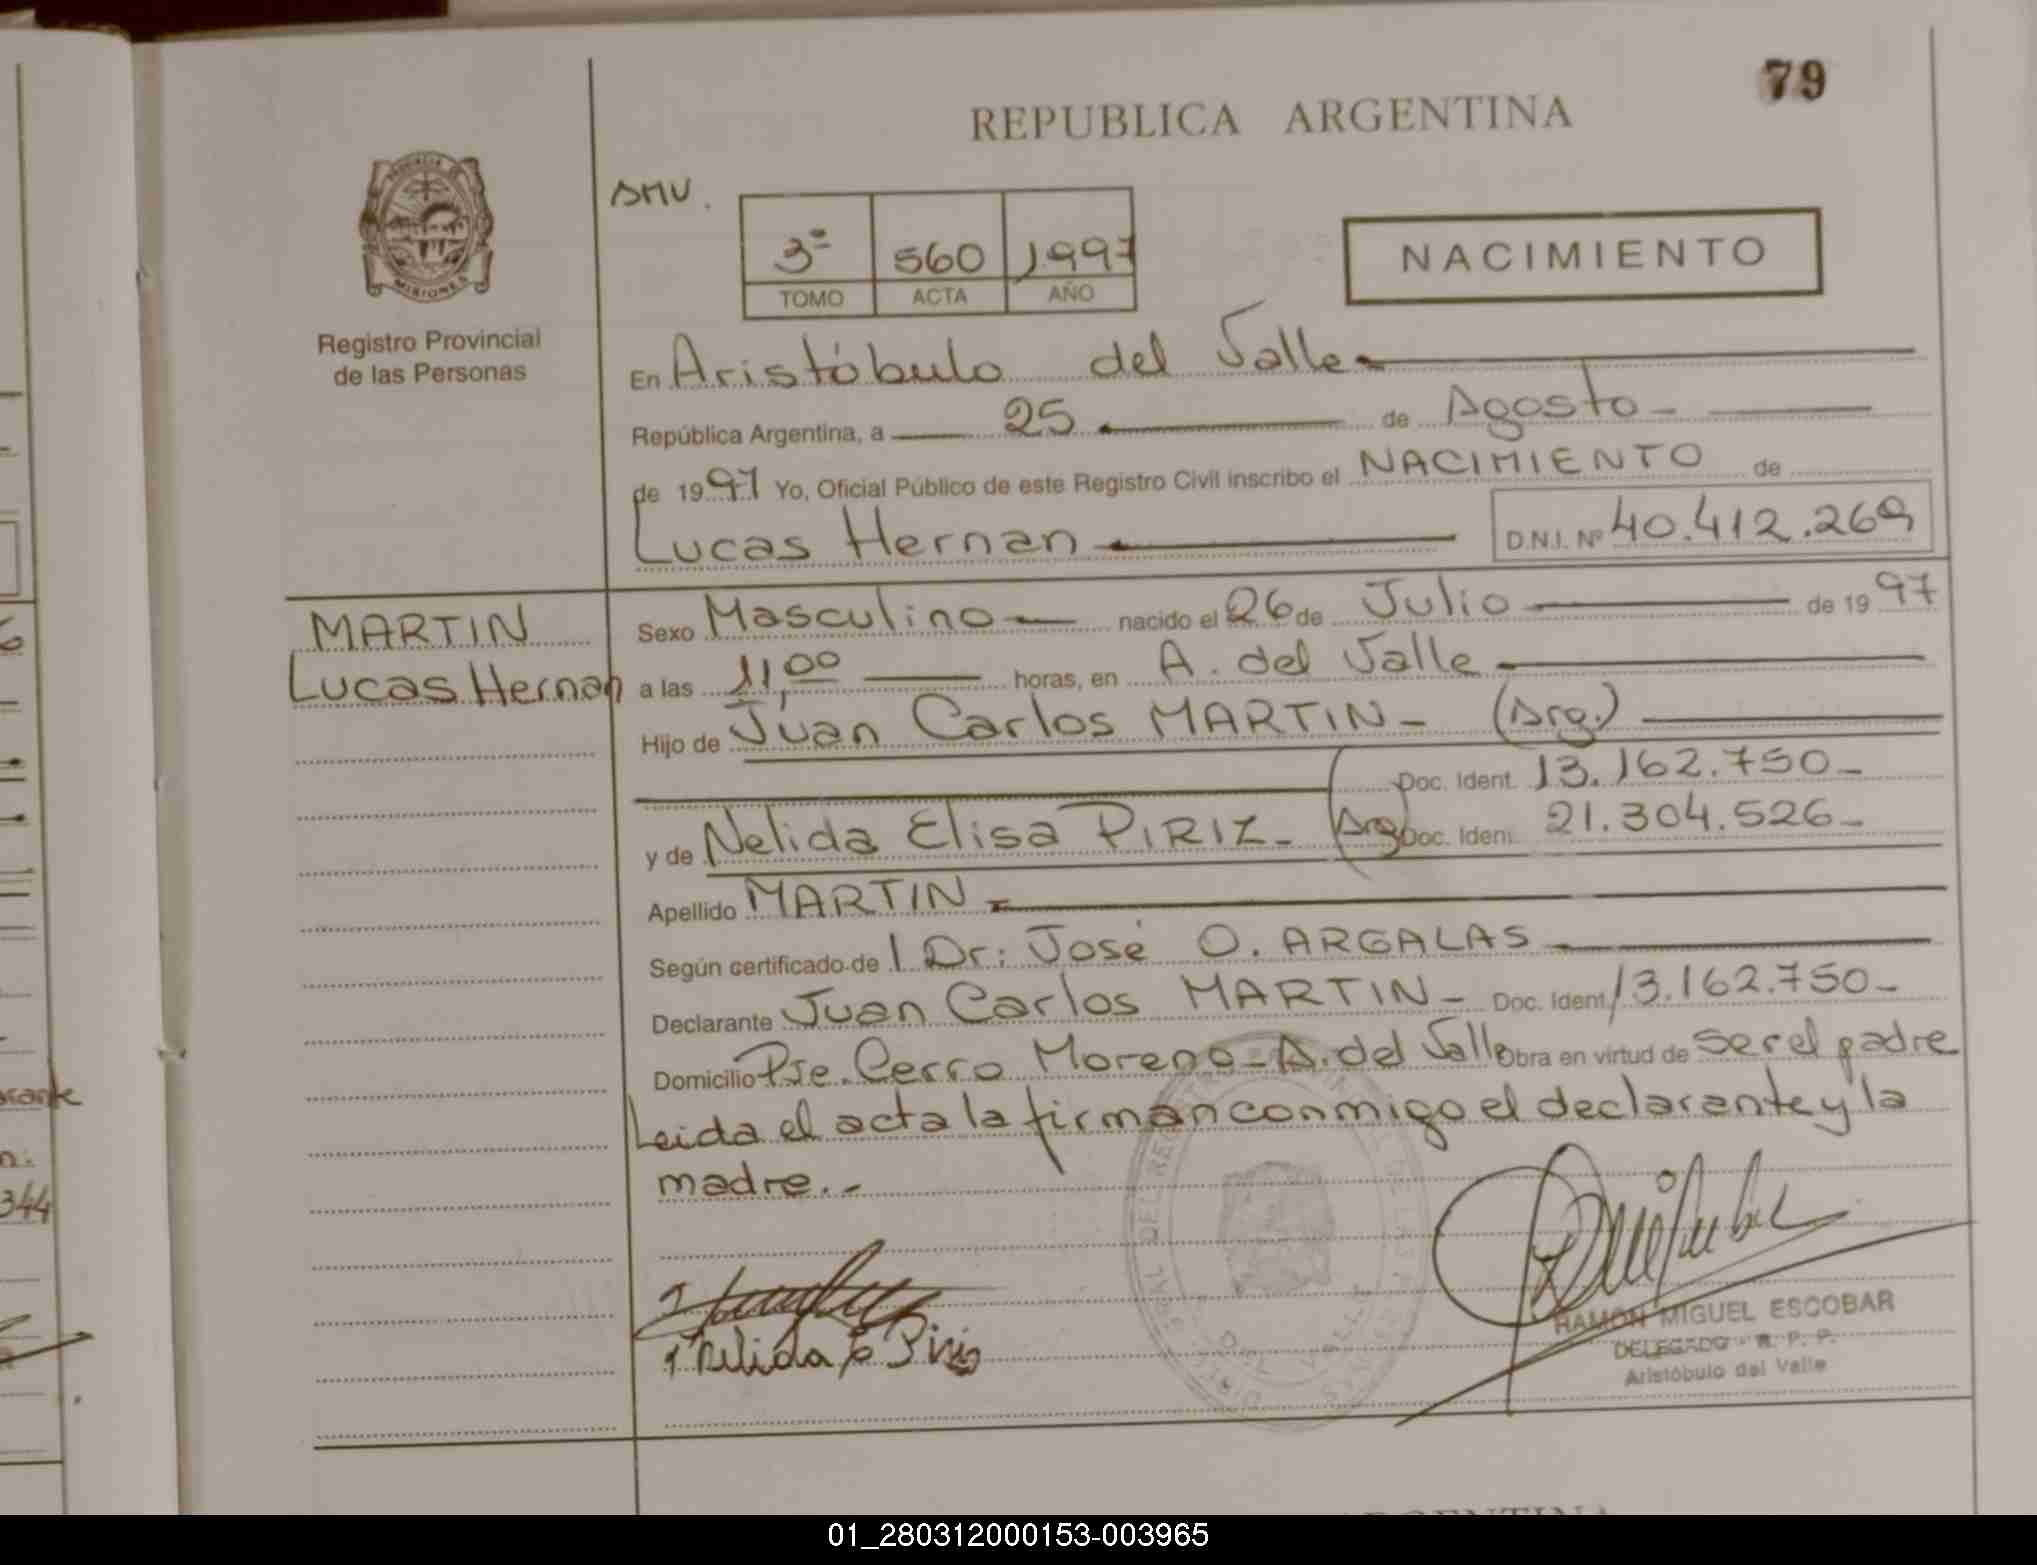 79
REPUBLICA ARGENTINA
PROVINCIA DE
MISIONES
Registro Provincial
de las Personas
AMV.
3º 560 1997
TOMO ACTA AÑO
NACIMIENTO
En Aristóbulo del Valle
República Argentina, a 25 de Agosto
de 1997 Yo, Oficial Público de este Registro Civil inscribo el NACIMIENTO de
Lucas Hernan D.N.I. Nº 40.412.269
MARTIN
Lucas Hernan
Sexo Masculino nacido el 26 de Julio de 1997
a las 11,00 horas, en A. del Valle
Hijo de Juan Carlos MARTIN - (Arg.)
Doc. Ident. 13.162.750-
y de Nelida Elisa PIRIZ - (Arg) Doc. Ident. 21.304.526-
Apellido MARTIN
Según certificado de l Dr: José O. ARGALAS
Declarante Juan Carlos MARTIN - Doc. Ident. 13.162.750-
Domicilio Pje. Cerro Moreno - A. del Valle Obra en virtud de ser el padre
Leida el acta la firman conmigo el declarante y la
madre.-
Nelida E Piris
RAMON MIGUEL ESCOBAR
DELEGADO - R. P. P.
Aristóbulo del Valle
01_280312000153-003965